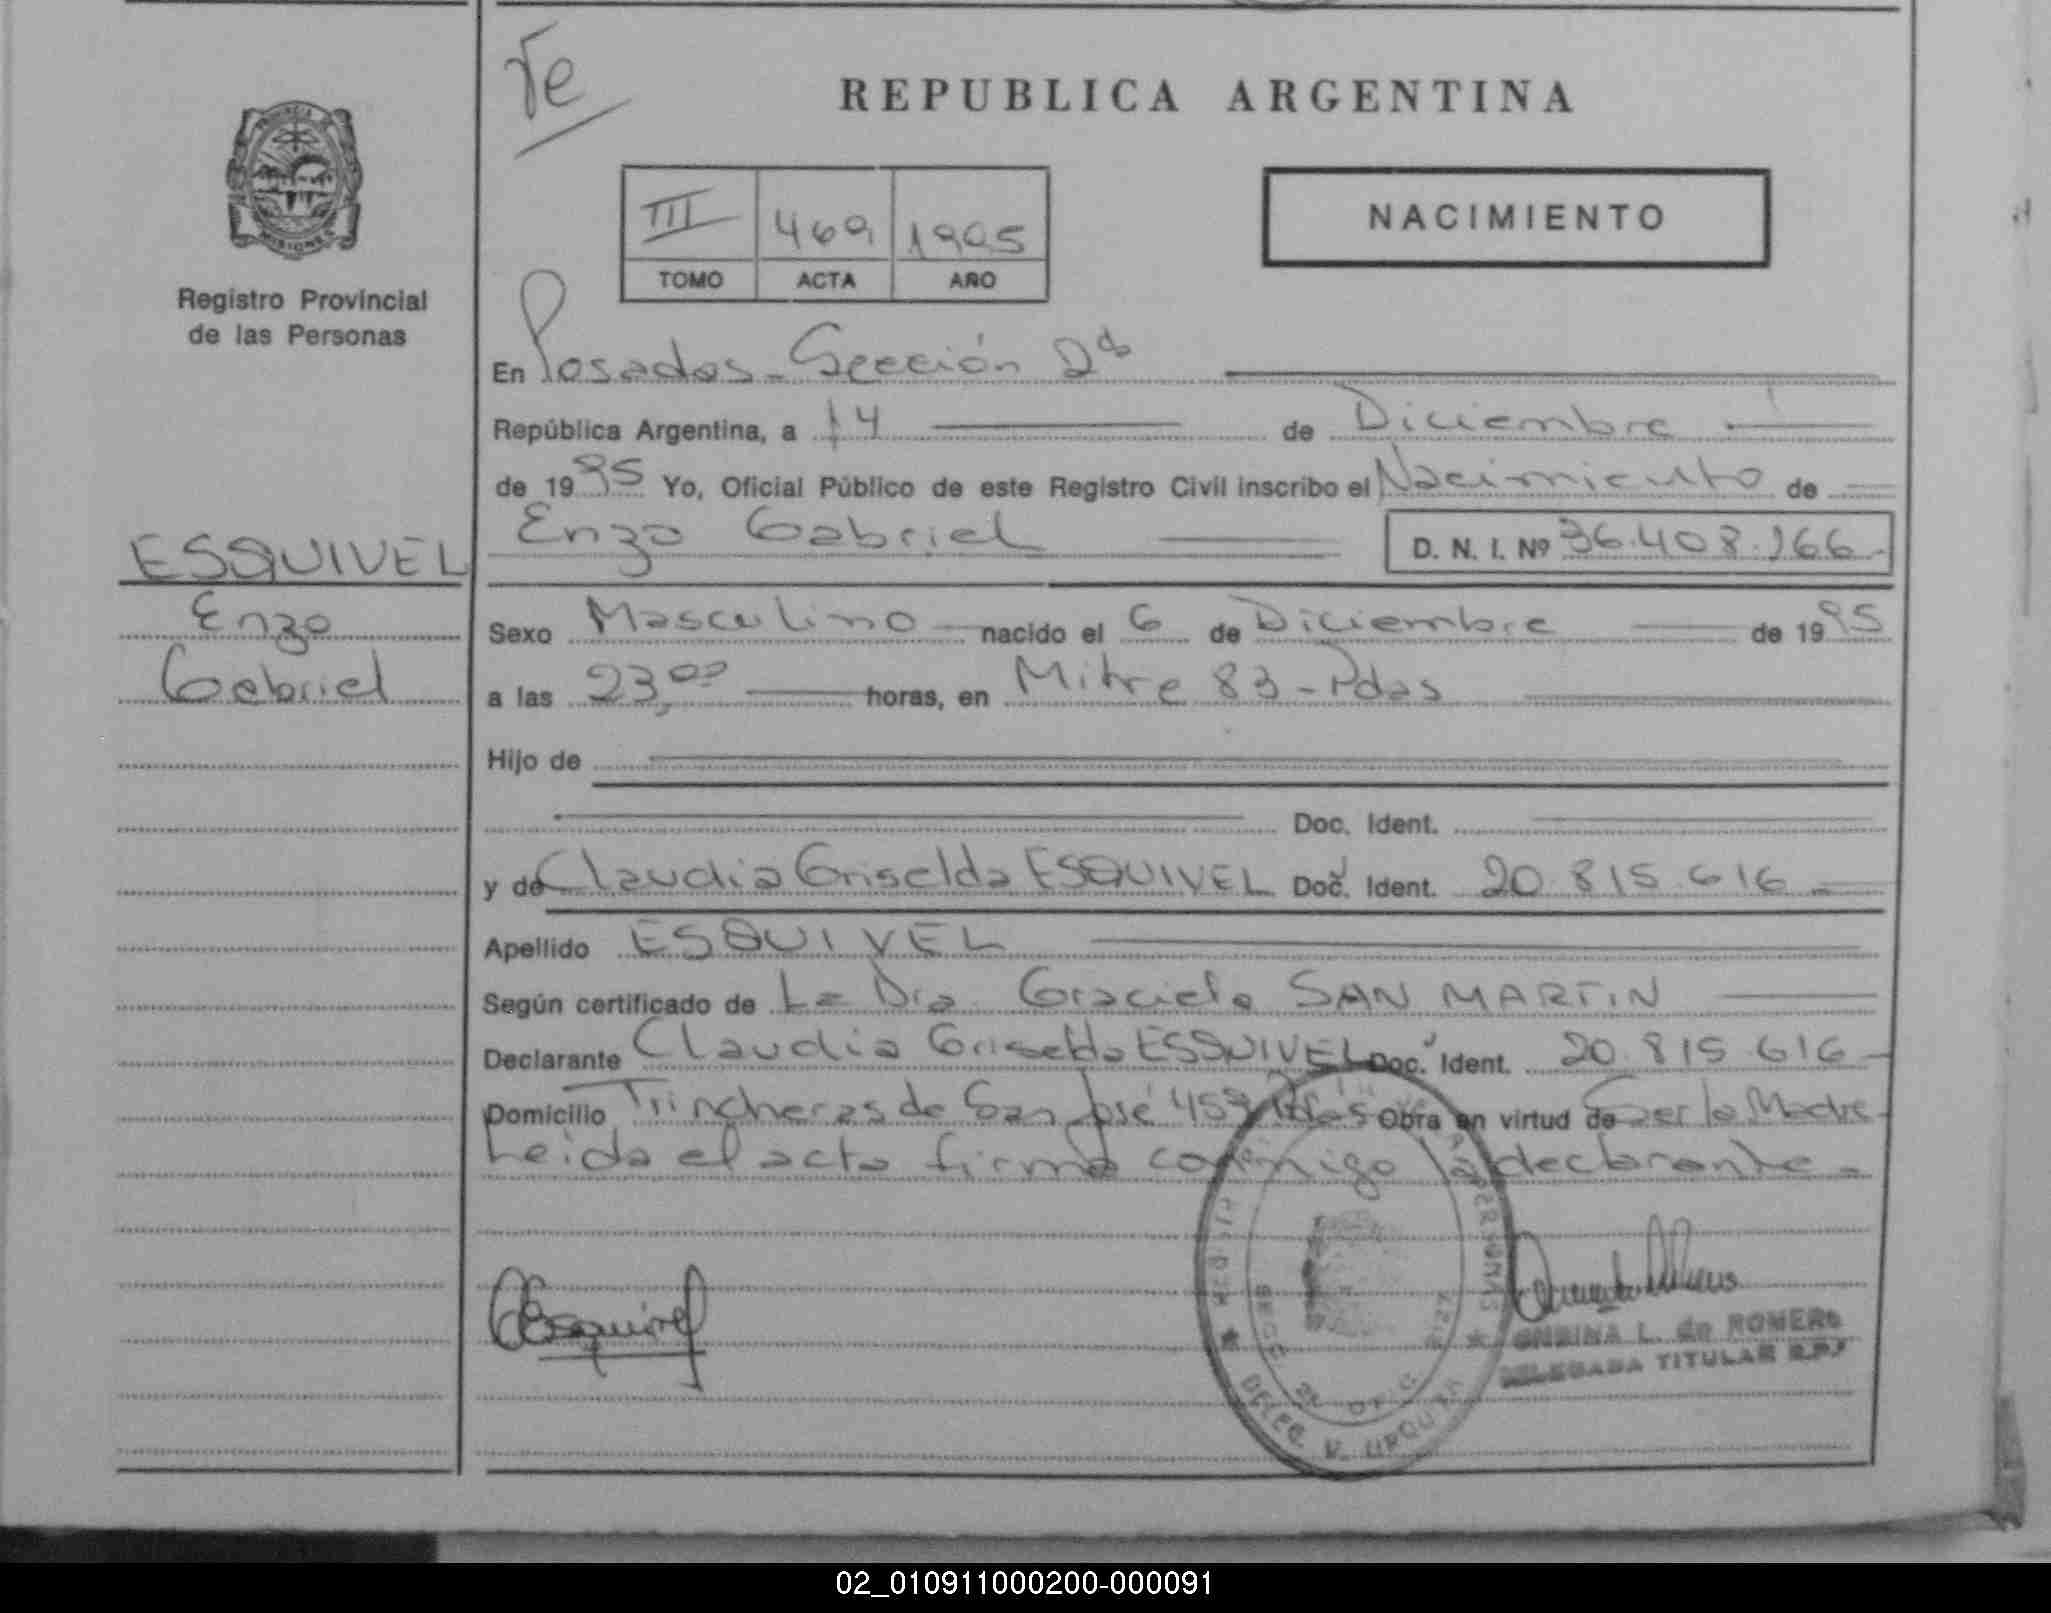 Te
REPUBLICA ARGENTINA
PROVINCIA DE
MISIONES
III 469 1995
TOMO ACTA AÑO
NACIMIENTO
Registro Provincial
de las Personas
En Posadas - Sección 2ª
República Argentina, a 14 de Diciembre
de 1995 Yo, Oficial Público de este Registro Civil inscribo el Nacimiento de
Enzo Gabriel D. N. I. Nº 36.408.166
ESQUIVEL
Enzo
Gabriel
Sexo Masculino nacido el 6 de Diciembre de 1995
a las 23,00 horas, en Mitre 83 - Pdas
Hijo de
Doc. Ident.
y de Claudia Griselda ESQUIVEL Doc. Ident. 20.815.616
Apellido ESQUIVEL
Según certificado de La Dra. Graciela SAN MARTIN
Declarante Claudia Griselda ESQUIVEL Doc. Ident. 20.815.616
Domicilio Trincheras de San José 459 Pdas Obra en virtud de Ser la Madre
Leida el acta firma conmigo la declarante.-
CEsquivel
PERSONAS
SECC. 2ª OFIC.
DELEG. V. URQUIZA
L. de ROMERO
DELEGADA TITULAR R.P.P
02_010911000200-000091